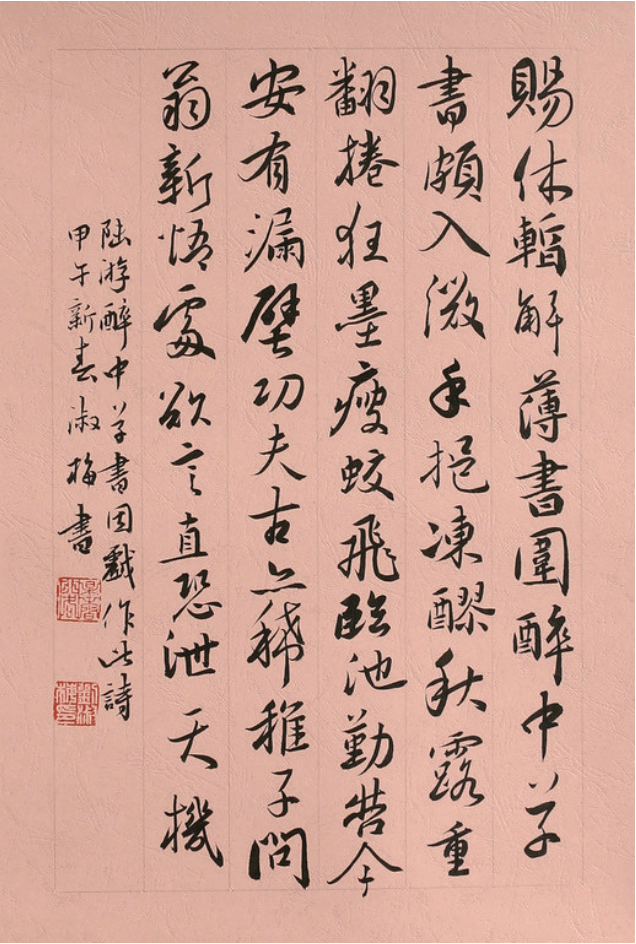 賜休暫解薄書圍醉中草
書頗入微手挹凍醪秋露重
翻捲狂墨瘦蛟飛臨池勤苦今
安有漏壁功夫古亦稀稚子問
翁新悟處欲言直恐泄天機
陸游醉中草書因戲作此詩
甲午新春淑梅書
劉淑梅印